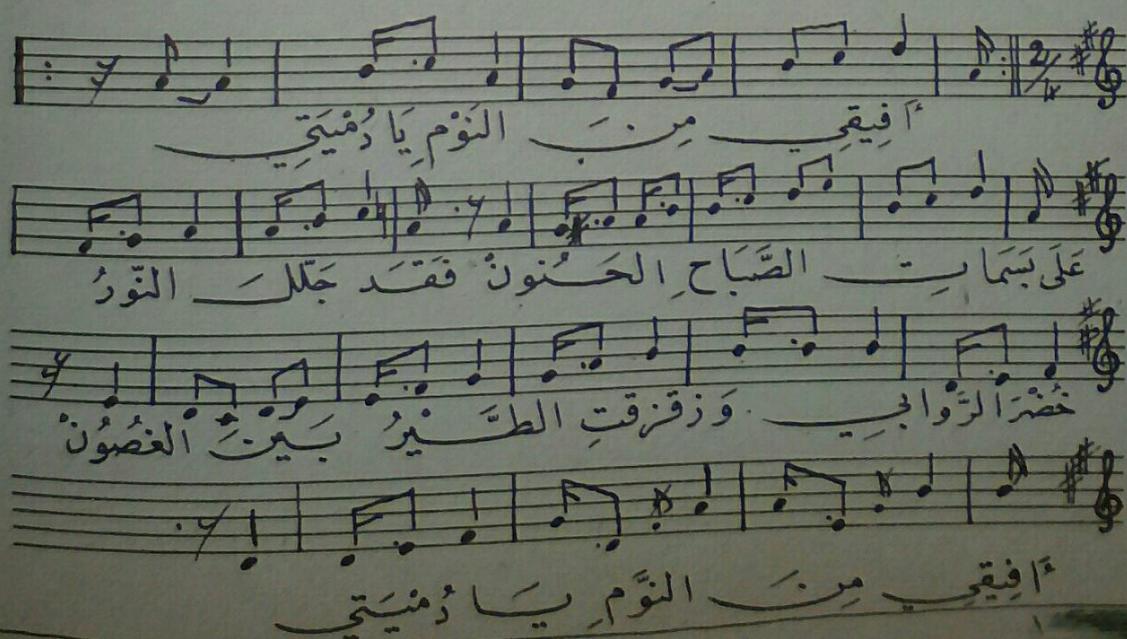 أَفِيقِي مِنَ النَوْمِ يَا دُمْيَتِي
عَلَى بَسَمَاتِ الصَّبَاحِ الحَنُونْ فَقَدَ جَلَّلَ النّورُ
خُضْرَ الرَّوابِي وَزقزقتِ الطَّيْرُ بَينَ الغُصُونْ
أَفِيقِي مِنَ النوَّمِ يَا دُمْيَتي